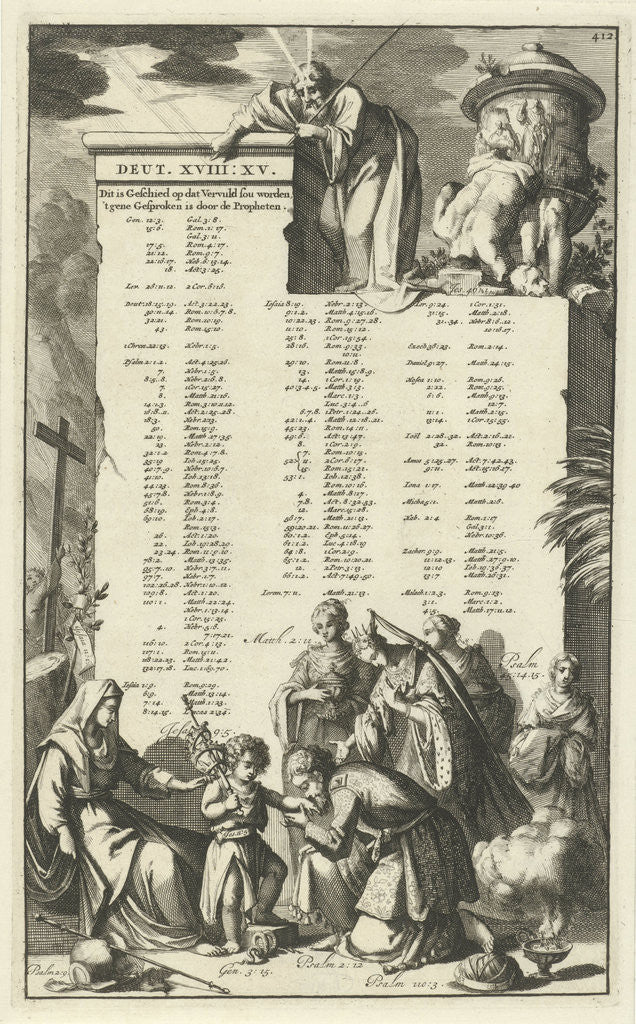 412
DEUT. XVIII: XV.
Dit is Geschied op dat Vervuld sou worden,
't gene Gesproken is door de Propheten.
Gen. 12:3. Gal. 3:8.
15:6. Rom. 4:17.
Gal. 3:11.
17:5. Rom. 4:17.
21:12. Rom. 9:7.
22:16.17. Heb. 6:13.14.
18. Act. 3:25.
Lev. 26:11.12. 2 Cor. 6:16.
Deut: 18:15.19. Act. 3:22.23.
30:11.14. Rom. 10:6.7.8.
32:21. Rom. 10:19.
43. Rom. 15:10.
1 Chron. 22:13. Hebr. 1:5.
Psalm 2:1.2. Act. 4:25.26.
7. Hebr. 1:5.
8:5..8. Hebr. 2:6.8.
7. 1 Cor. 15:27.
8. Matth. 21:16.
14:1.3. Rom. 3:10.12.
16:8..11. Act. 2:25.28.
18:3. Hebr. 2:13.
50. Rom. 15:9.
22:19. Matth. 27:35.
23. Hebr. 2:12.
32:1.2. Rom. 4:7.8.
35:19. Joh. 15:25.
40:7.9. Hebr. 10:5.7.
41:10. Joh. 13:18.
44:23. Rom. 8:36.
45:7.8. Hebr. 1:8.9.
51:6. Rom. 3:4.
68:19. Eph. 4:8.
69:10. Joh. 2:17.
Rom. 15:3.
26. Act. 1:20.
22. Joh. 19:28.29.
23.24. Rom. 11:9.10.
78:2. Matth. 13:35.
95:7..10. Hebr. 3:7..11.
97:7. Hebr. 1:7.
102:26.28. Hebr. 1:10.12.
109:8. Act. 1:20.
110:1. Matth. 22:24.
Hebr. 1:13.14.
1 Cor. 15:25.
4. Hebr. 5:6.
7:17.21.
116:10. 2 Cor. 4:13.
117:1. Rom. 15:11.
118:22.23. Matth. 21:42.
132:17.18. Luc. 1:69.70.
Jesaia 1:9. Rom. 9:29.
6:9. Matth. 13:14.
7:14. Matth. 1:23.
8:14.15. Lucas 2:34.
Jesaia 8:19. Hebr. 2:13.
9:1.2. Matth. 4:15.16.
10:22.23. Rom. 9:27.28.
11:10. Rom. 15:12.
25:8. 1 Cor. 15:54.
28:16. Rom. 9:33.
10:11.
29:10. Rom. 11:8.
13. Matth. 15:8.9.
14. 1 Cor. 1:19.
40:3.4.5. Matth. 3:3.
Marc. 1:3.
Luc. 3:4..6
6.7.8. 1 Petr. 1:24..26.
42:1..4. Matth. 12:18.21.
45:23. Rom. 14:11.
49:6. Act. 13:47.
8. 1 Cor. 2:9.
7. Rom. 10:15.
52: 11. 2 Cor. 6:17.
15. Rom. 15:21.
53:1. Joh. 12:38.
Rom. 10:16.
4. Matth. 8:17.
7.8. Act. 8:32.33.
12. Marc. 15:28.
56:7. Matth. 21:13.
59:20.21. Rom. 11:26.27.
60:1.2. Eph. 5:14.
61:1.2. Luc. 4:18.19
64:8. 1 Cor. 2:9.
65:1.2. Rom. 10:20.21.
12. 2 Petr. 3:13.
66:1.2. Act. 7:49.50.
Jerem. 7:11. Matth. 21:13.
Jer. 9:24. 1 Cor. 1:31.
31:15. Matth. 2:18.
31..34. Hebr. 8:8..12.
10:16.17.
Ezech. 36:23. Rom. 2:14.
Daniel. 9:27. Matth. 24:15.
Hosea 1:10. Rom. 9:26.
2:22. Rom. 9:25.
6:6. Matth. 9:13.
12:7.
11:1. Matth. 2:15.
13:14. 1 Cor. 15:55.
Joël 2:28..32. Act. 2:16..21.
32. Rom. 10:13.
Amos 5:25.27. Act. 7:42.43.
9:11. Act. 15:16.17.
Jona 1:17. Matth. 12:39.40
Micha 5:1. Matth. 2:6.
Hab. 2:4. Rom. 1:17
Gal. 3:11.
Hebr. 10:38.
Zachar. 9:9. Matth. 21:5.
11:12.13. Matth. 27:9.10.
12:10 Joh. 19:36.37.
13:7 Matth. 26:31.
Malach. 1:2.3. Rom. 9:13.
3:1. Marc. 1:2.
4:5. Matth. 17:11.12.
Matth. 2:11
Psalm
45:14.15.
Jesai 9:5
Psalm 2:9
Gen. 3:15.
Psalm 2:12
Psalm 110:3.